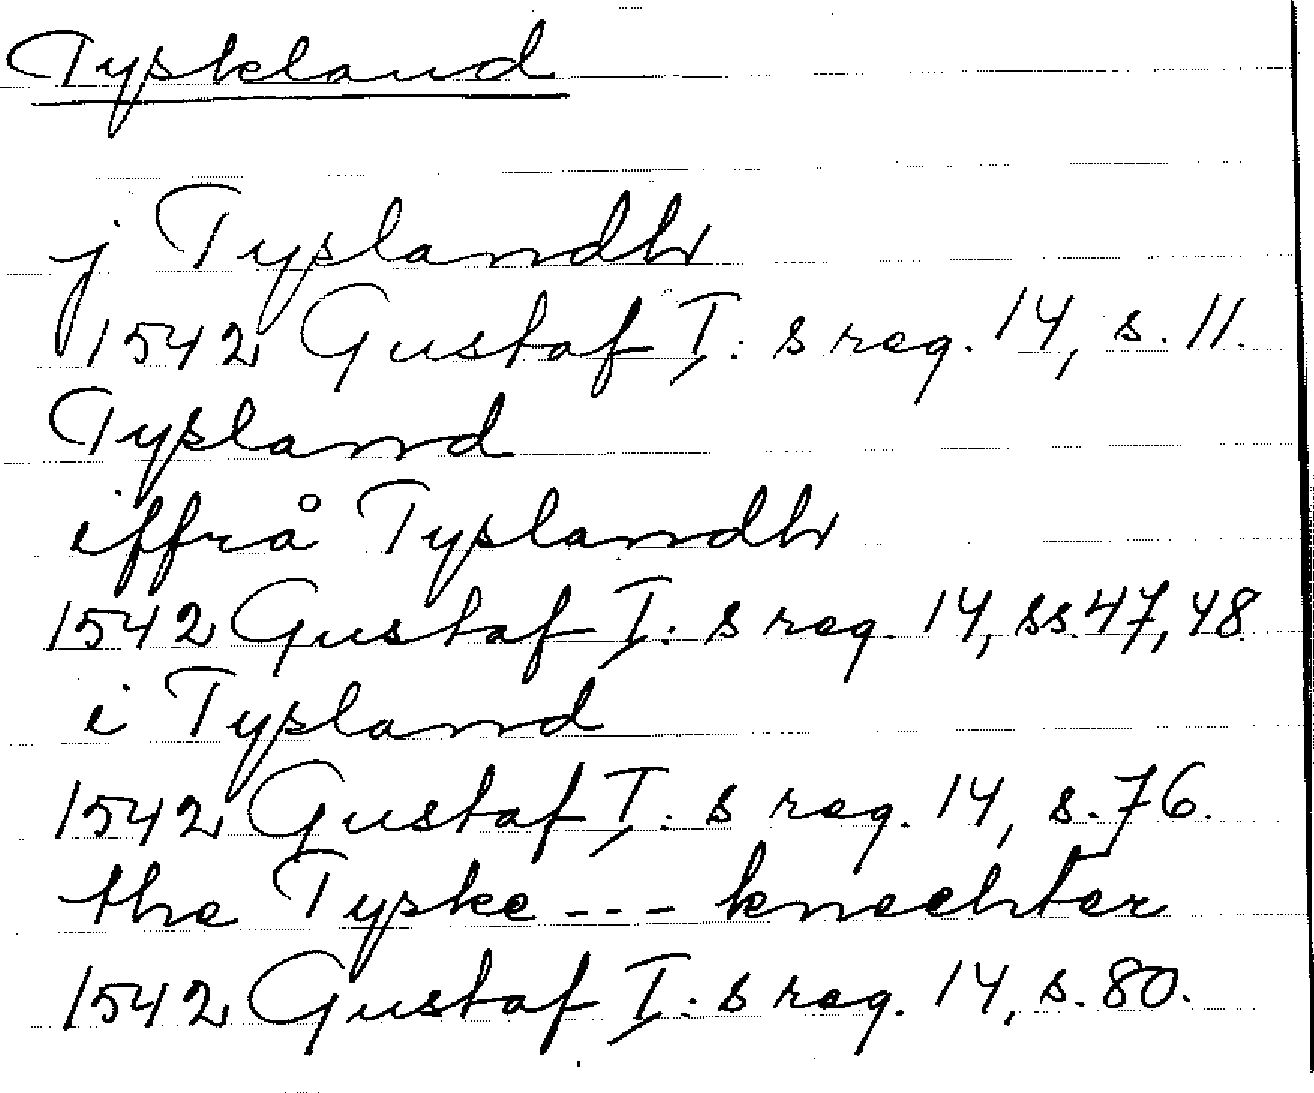 Tyskland
j Tyslandh
1542 Gustaf I:s reg. 14, s. 11.
Tysland
iffrå Tyslandh
1542 Gustaf I:s reg. 14, ss. 47, 48
i Tysland
1542 Gustaf I:s reg. 14, s. 76.
the Tyske --- knechter
1542 Gustaf I:s reg. 14, s. 80.